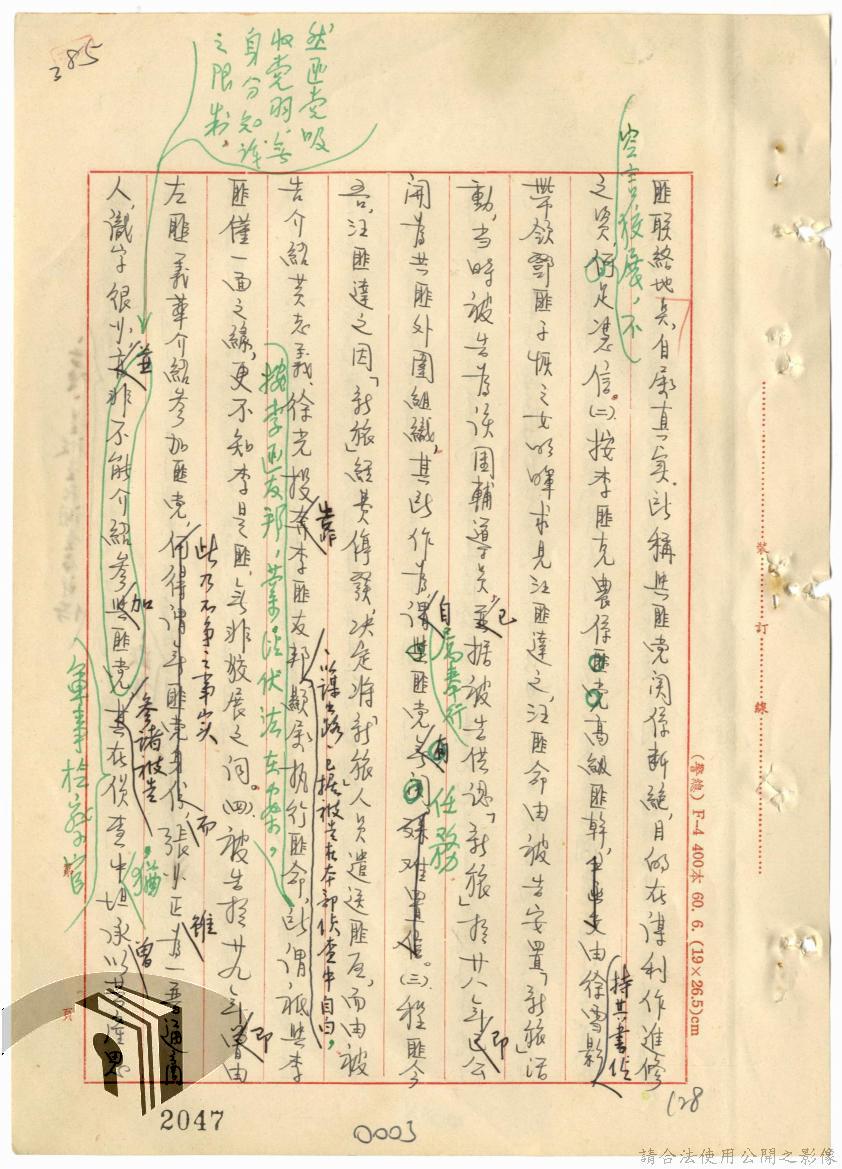 385
然匪党吸
收党羽，無
身分知識
之限制，
空言狡展，不
匪联絡地点，自屬真實，所稱與匪党関係断絕，目的在謀利作進修
之資，何足憑信。(二)、按李匪克農係匪党高級匪幹，由徐雪影
持其書信
帶領鄧匪子恢之女以暉求見汪匪達之，汪匪命由被告安置「新旅」活
動，当時被告為該团輔導員，已據被告供認「新旅」於廿八年即
公開為共匪外圍組織，其所作為，謂與匪党無関，殊难置信。(三)、程匪今
自屬奉行
有
任務
吾，汪匪達之因「新旅」經費停發，决定将「新旅」人員遣送匪區，而由被
告介紹黄志義、徐光投靠李匪友邦，顯屬执行匪命，所謂衹與李
以謀出路，已據被告在本部偵查中自白，
按李匪友邦，業經伏法在案，
匪僅一面之緣，更不知李是匪，無非狡展之詞。(四)、被告於廿九年即由
左匪義華介紹参加匪党，
此乃不争之事实
何得謂無匪党身份，張小正雖為一普通商
而
人，識字很少，並非不能介紹参加匪党，其在偵查中坦承
参諸被告
猶
曾
軍事检察官
裝 訂 線
(警總) F-4 400本 60. 6. (19×26.5)cm
第
頁
128
2047
0003
請合法使用公開之影像